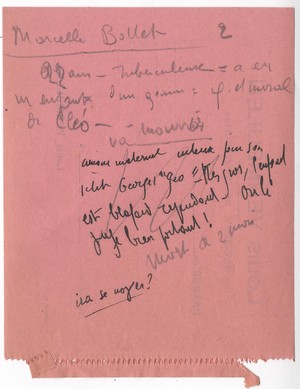 Marcelle Bollet 2
22 ans - Tuberculeuse = a eu
un enfant d'un gamin =
de Cléo -
va mourir
amour maternel intense pour son
petit Georges
est blafard cependant - on le
juge bien portant !
Mort à 2 mois
ira se noyer ?